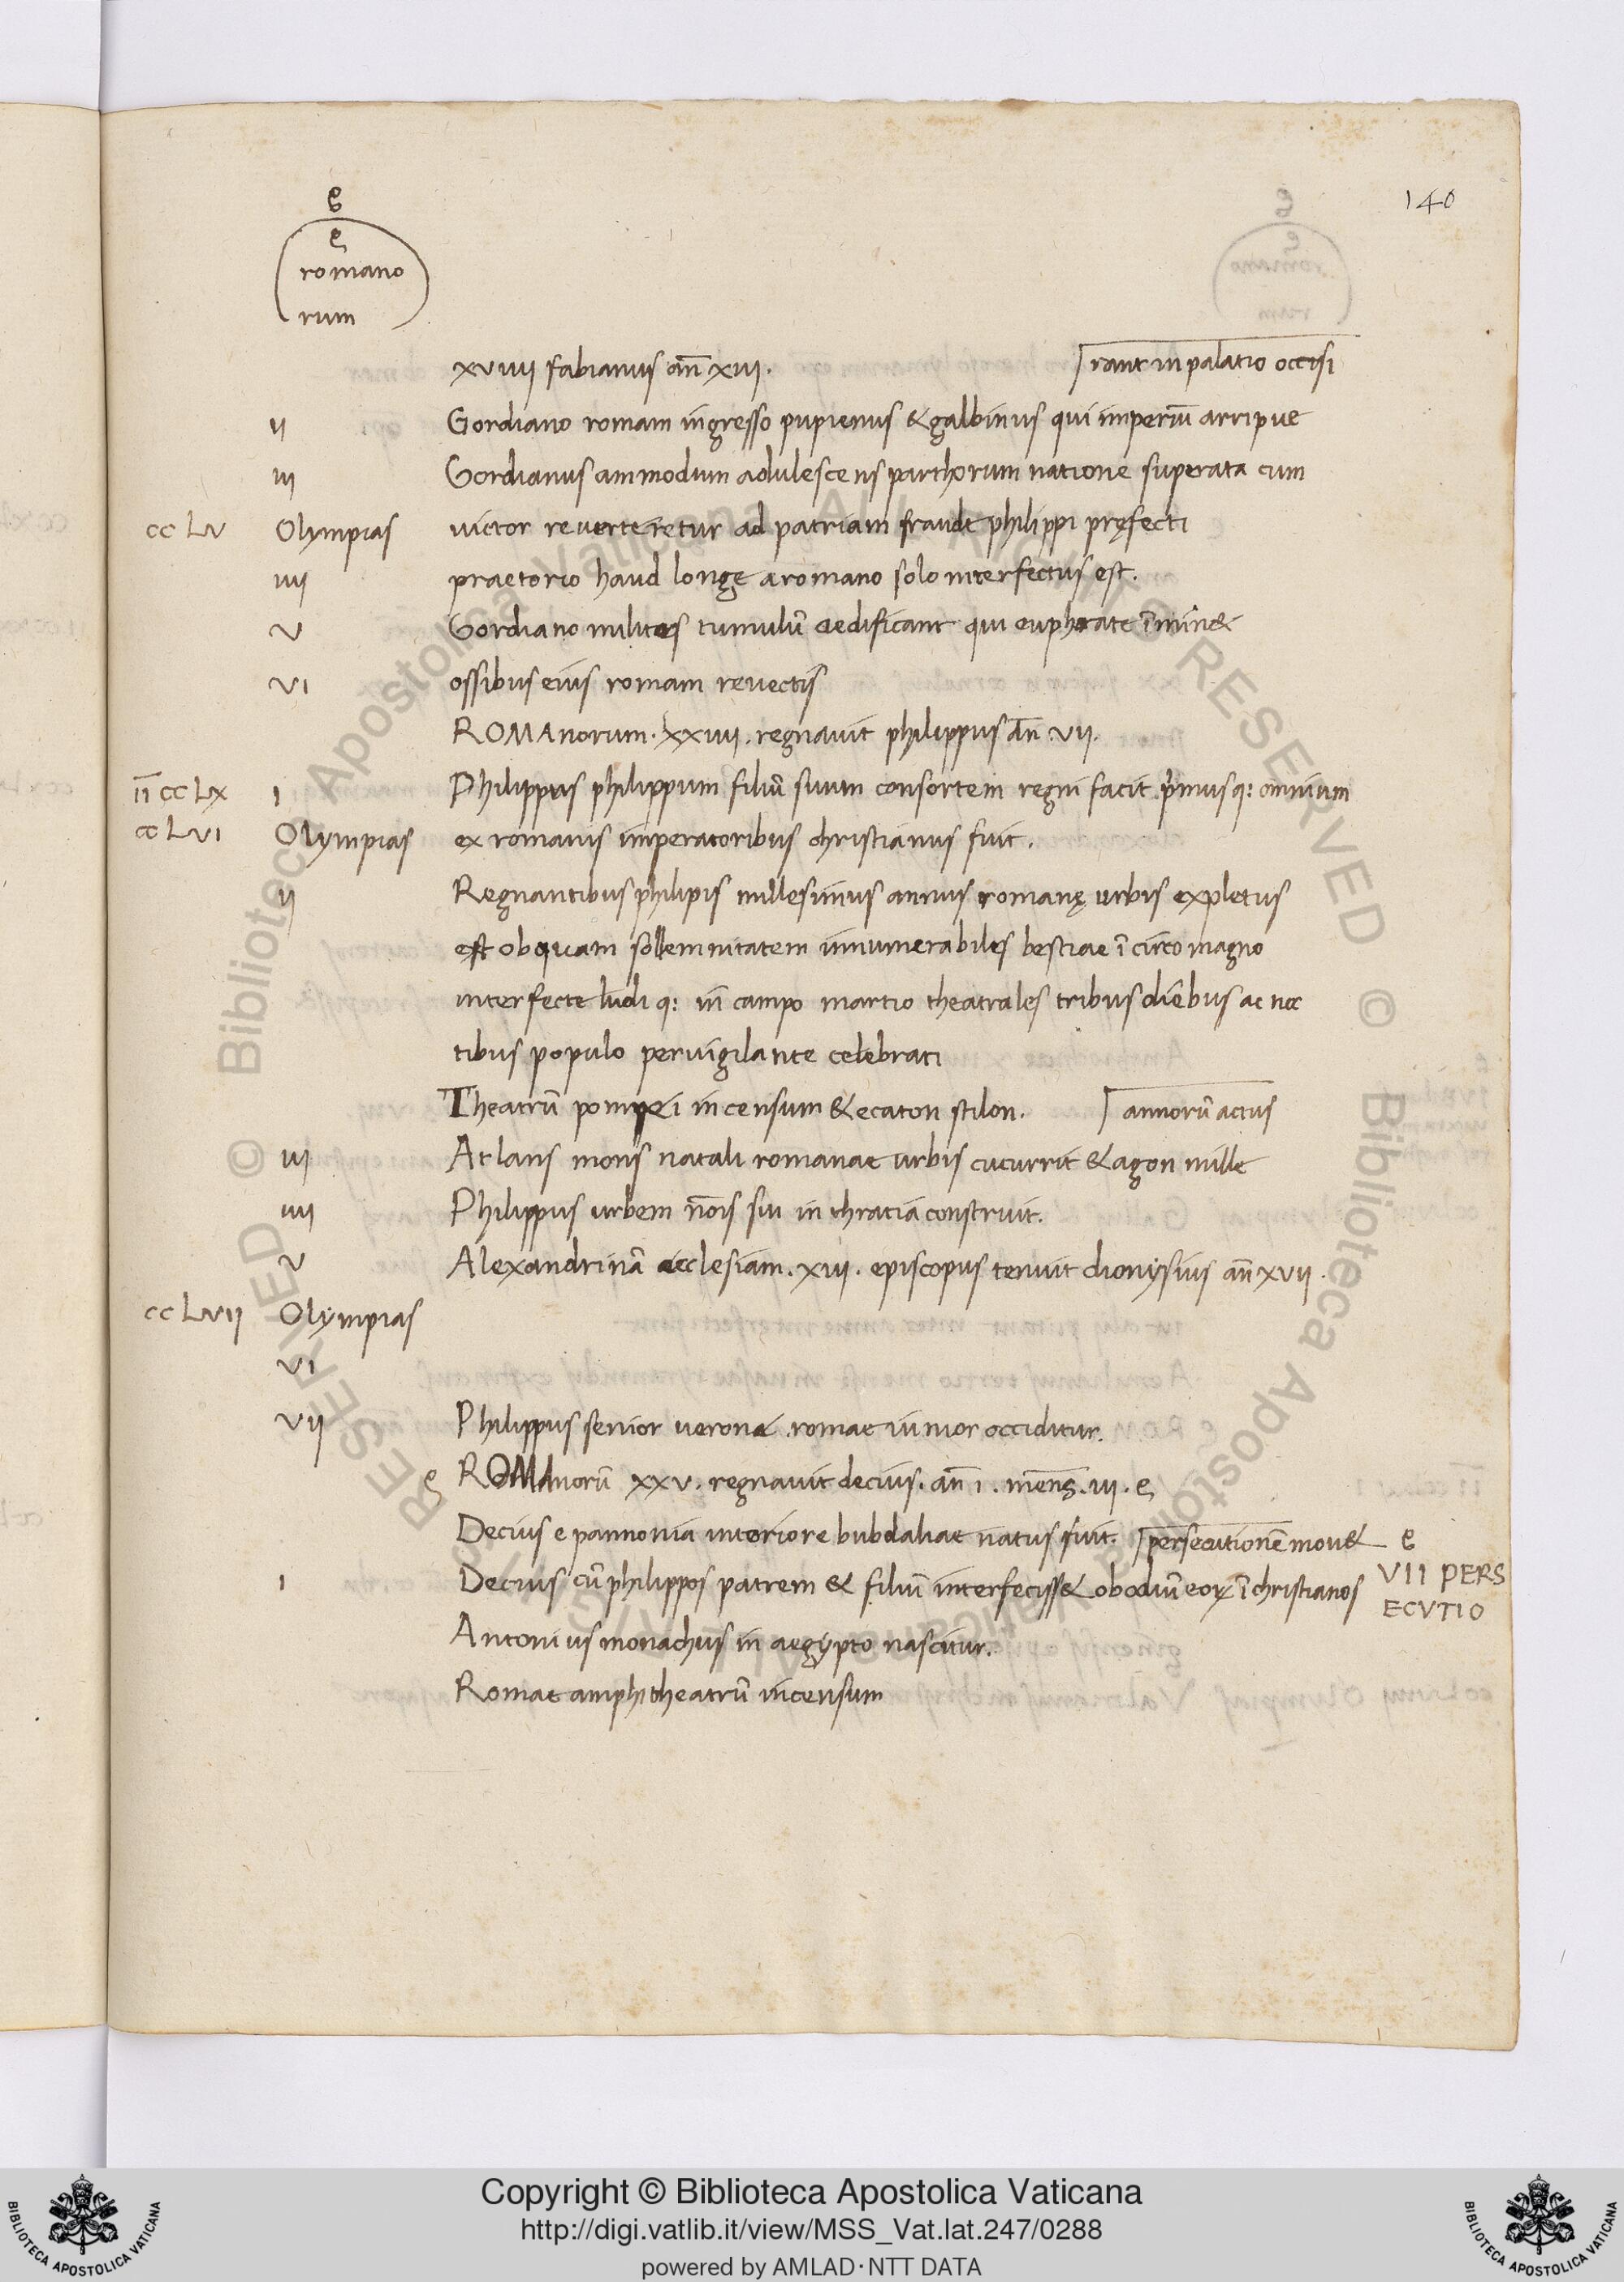 ę
140
ę
romano
rum
xviiii fabianus añ xiii. rant in palatio occisi
ii Gordiano romam ingresso pupienus & galbinus qui imperiū arripue
iii Gordianus ammodum adulescens parthorum natione superata cum
cc Lv Olympias victor reverteretur ad patriam fraude philippi pręfecti
iiii praetorio haud longe a romano solo interfectus est.
v Gordiano milites tumulū aedificant qui euphrate īmin&
vi ossibus eius romam revectis
ROMAnorum. xxiiii. regnavit philippus añ vii.
īī cc Lx i Philippus philippum filiū suum consortem regni facit primusq: omnium
cc Lvi Olympias ex romanis imperatoribus christianus fuit.
ii Regnantibus philipis millesimus annus romanę urbis expletus
est ob quam sollemnitatem innumerabiles bestiae ī circo magno
interfecte ludi q: in campo martio theatrales tribus diebus ac noc
tibus populo pervigilante celebrati
Theatrū pompei incensum & ecaton stilon. annorū actus
iii Atlans mons natali romanae urbis cucurrit & agon mille
iiii Philippus urbem nois sui in thracia construit.
v Alexandrinā aecclesiam. xiii. episcopus tenuit dionysius añ xvii.
cc Lvii Olympias
vi
vii Philippus senior verona. romae iunior occiditur.
ę ROMAnorū xxv. regnavit decius. añ i. mens. iii. e
Decius e pannonia inferiore bubdaliae natus fuit. persecutionē mov& e
i Decius cū philippos patrem & filiū interfeciss& ob odiū eorꝝ ī christianos VII PERS
ECVTIO
Antonius monachus in aegypto nascitur.
Romae amphitheatrū incensum
Copyright © Biblioteca Apostolica Vaticana
http://digi.vatlib.it/view/MSS_Vat.lat.247/0288
powered by AMLAD·NTT DATA